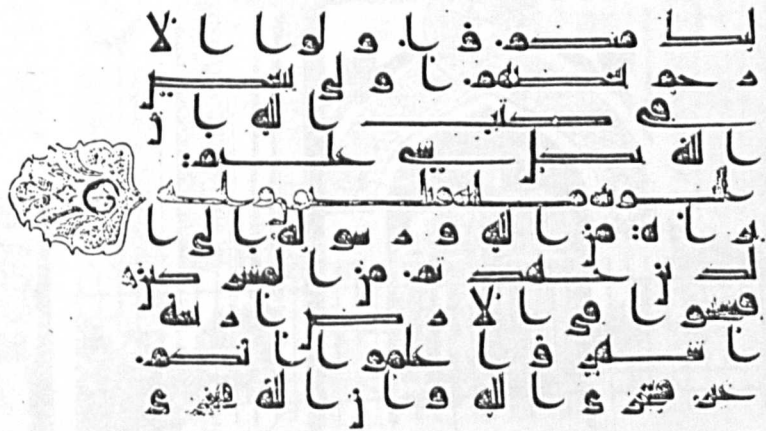 لئك منكم واولوا الا
رحم بعضهم اولى ببعض
فى كتب الله ان
الله بكل شى عليم
براة من الله ورسوله الى ا
لذين عهدتم من المشركين
فسيحوا فى الارض اربعة
اشهر واعلموا انكم
غير معجزى الله وان الله مخزى